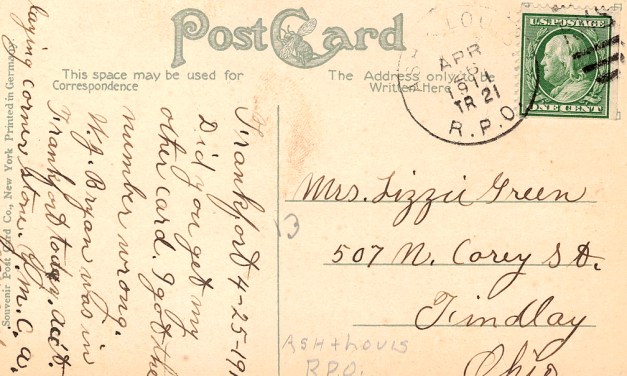 Post Card
This space may be used for
Correspondence
The Address only to be
Written Here
APR
TR 21
R.P.O.
U.S. POSTAGE
ONE CENT
Souvenir Post Card Co., New York Printed in Germany
Frankfort 4-25-191
Did you get my
other card. I got the
number wrong.
W. J. Bryan was in
Frankfort today. acct.
laying corner stone. Y.M.C.A.
Mrs. Lizzie Green
507 N. Corey St.
Findlay
Ohio
13
ASH + LOUIS
R.P.O.